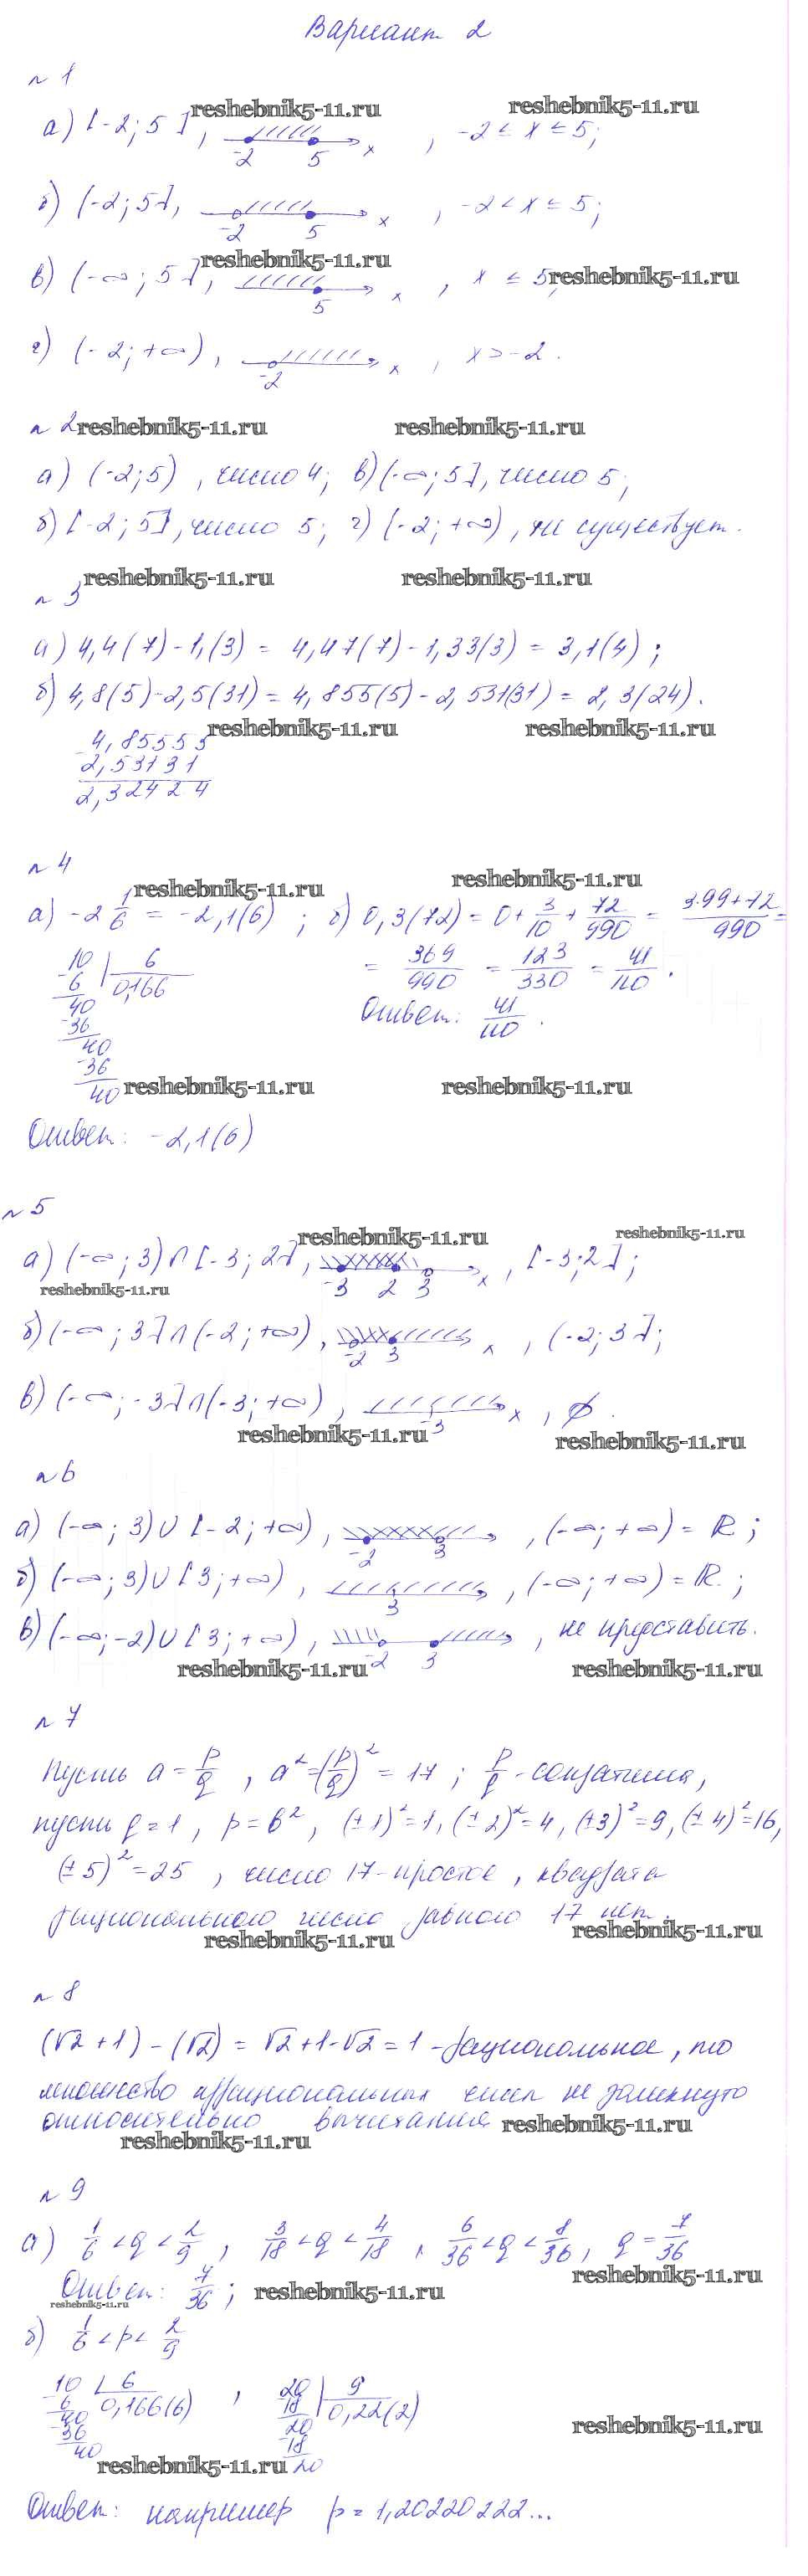 Вариант 2
№ 1
а) [-2; 5], -2 5 x , -2 ≤ x ≤ 5;
reshebnik5-11.ru reshebnik5-11.ru
б) (-2; 5], -2 5 x , -2 < x ≤ 5;
reshebnik5-11.ru reshebnik5-11.ru
в) (-∞; 5], 5 x , x ≤ 5,
г) (-2; +∞), -2 x , x > -2.
№ 2 reshebnik5-11.ru reshebnik5-11.ru
а) (-2; 5), число 4; в) (-∞; 5], число 5;
б) [-2; 5], число 5; г) (-2; +∞), не существует.
reshebnik5-11.ru reshebnik5-11.ru
№ 3
а) 4,4(7) - 1,(3) = 4,47(7) - 1,33(3) = 3,1(4);
б) 4,8(5) - 2,5(31) = 4,855(5) - 2,531(31) = 2,3(24).
reshebnik5-11.ru reshebnik5-11.ru
4,85555
2,53131
2,32424
№ 4
reshebnik5-11.ru reshebnik5-11.ru
а) -2 1/6 = -2,1(6); б) 0,3(72) = 0 + 3/10 + 72/990 = (3·99+72)/990 =
10 | 6 = 369/990 = 123/330 = 41/110.
-6 0,166
40 Ответ: 41/110.
-36
40
-36
40 reshebnik5-11.ru reshebnik5-11.ru
Ответ: -2,1(6)
№ 5
reshebnik5-11.ru reshebnik5-11.ru
а) (-∞; 3) ∩ [-3; 2], -3 2 3 x , [-3; 2];
reshebnik5-11.ru
б) (-∞; 3] ∩ (-2; +∞), -2 3 x , (-2; 3];
в) (-∞; -3] ∩ (-3; +∞), -3 x , ∅.
reshebnik5-11.ru reshebnik5-11.ru
№ 6
а) (-∞; 3) ∪ [-2; +∞), -2 3 , (-∞; +∞) = R;
б) (-∞; 3) ∪ [3; +∞), 3 , (-∞; +∞) = R;
в) (-∞; -2) ∪ [3; +∞), -2 3 , не представить.
reshebnik5-11.ru reshebnik5-11.ru
№ 7
Пусть a = p/q, a² = (p/q)² = 17; p/q - сократима,
пусть q = 1, p = b², (±1)² = 1, (±2)² = 4, (±3)² = 9, (±4)² = 16,
(±5)² = 25, число 17 - простое, квадрата
рационального число равного 17 нет.
reshebnik5-11.ru reshebnik5-11.ru
№ 8
(√2 + 1) - (√2) = √2 + 1 - √2 = 1 - рациональное, то
множество иррациональных чисел не замкнуто
относительно вычитания reshebnik5-11.ru
reshebnik5-11.ru
№ 9
а) 1/6 < q < 2/9, 3/18 < q < 4/18, 6/36 < q < 8/36, q = 7/36
Ответ: 7/36; reshebnik5-11.ru reshebnik5-11.ru
reshebnik5-11.ru
б) 1/6 < p < 2/9
10 | 6 , 20 | 9
6 0,166(6) 18 0,22(2)
40 20
-36 -18
40 20
reshebnik5-11.ru reshebnik5-11.ru
Ответ: например p = 1,20220222...